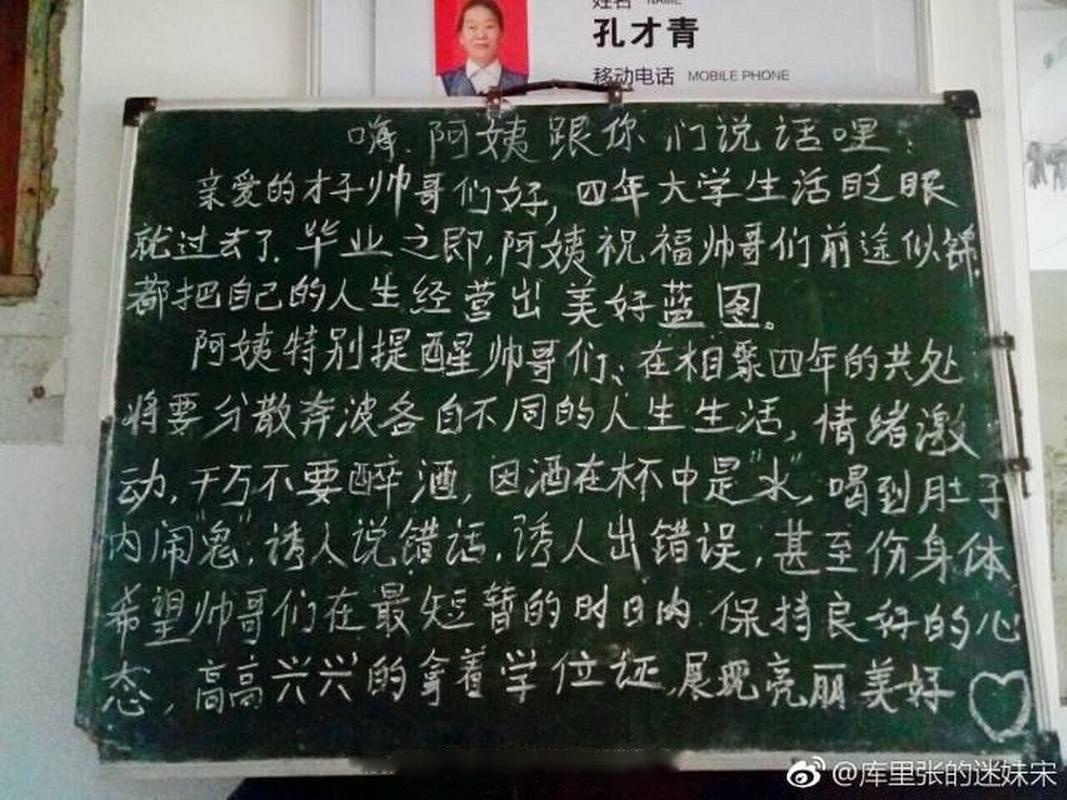 姓名 NAME
孔才青
移动电话 MOBILE PHONE
嗨.阿姨跟你们说话哩:
亲爱的才子帅哥们好,四年大学生活眨眼
就过去了.毕业之即,阿姨祝福帅哥们前途似锦,
都把自己的人生经营出美好蓝图。
阿姨特别提醒帅哥们、在相聚四年的共处
将要分散奔波各自不同的人生生活,情绪激
动,千万不要醉酒,因酒在杯中是"水",喝到肚子
内闹"鬼",诱人说错话,诱人出错误,甚至伤身体
希望帅哥们在最短暂的时日内.保持良好的心
态,高高兴兴的拿着学位证,展现亮丽美好
@库里张的迷妹宋